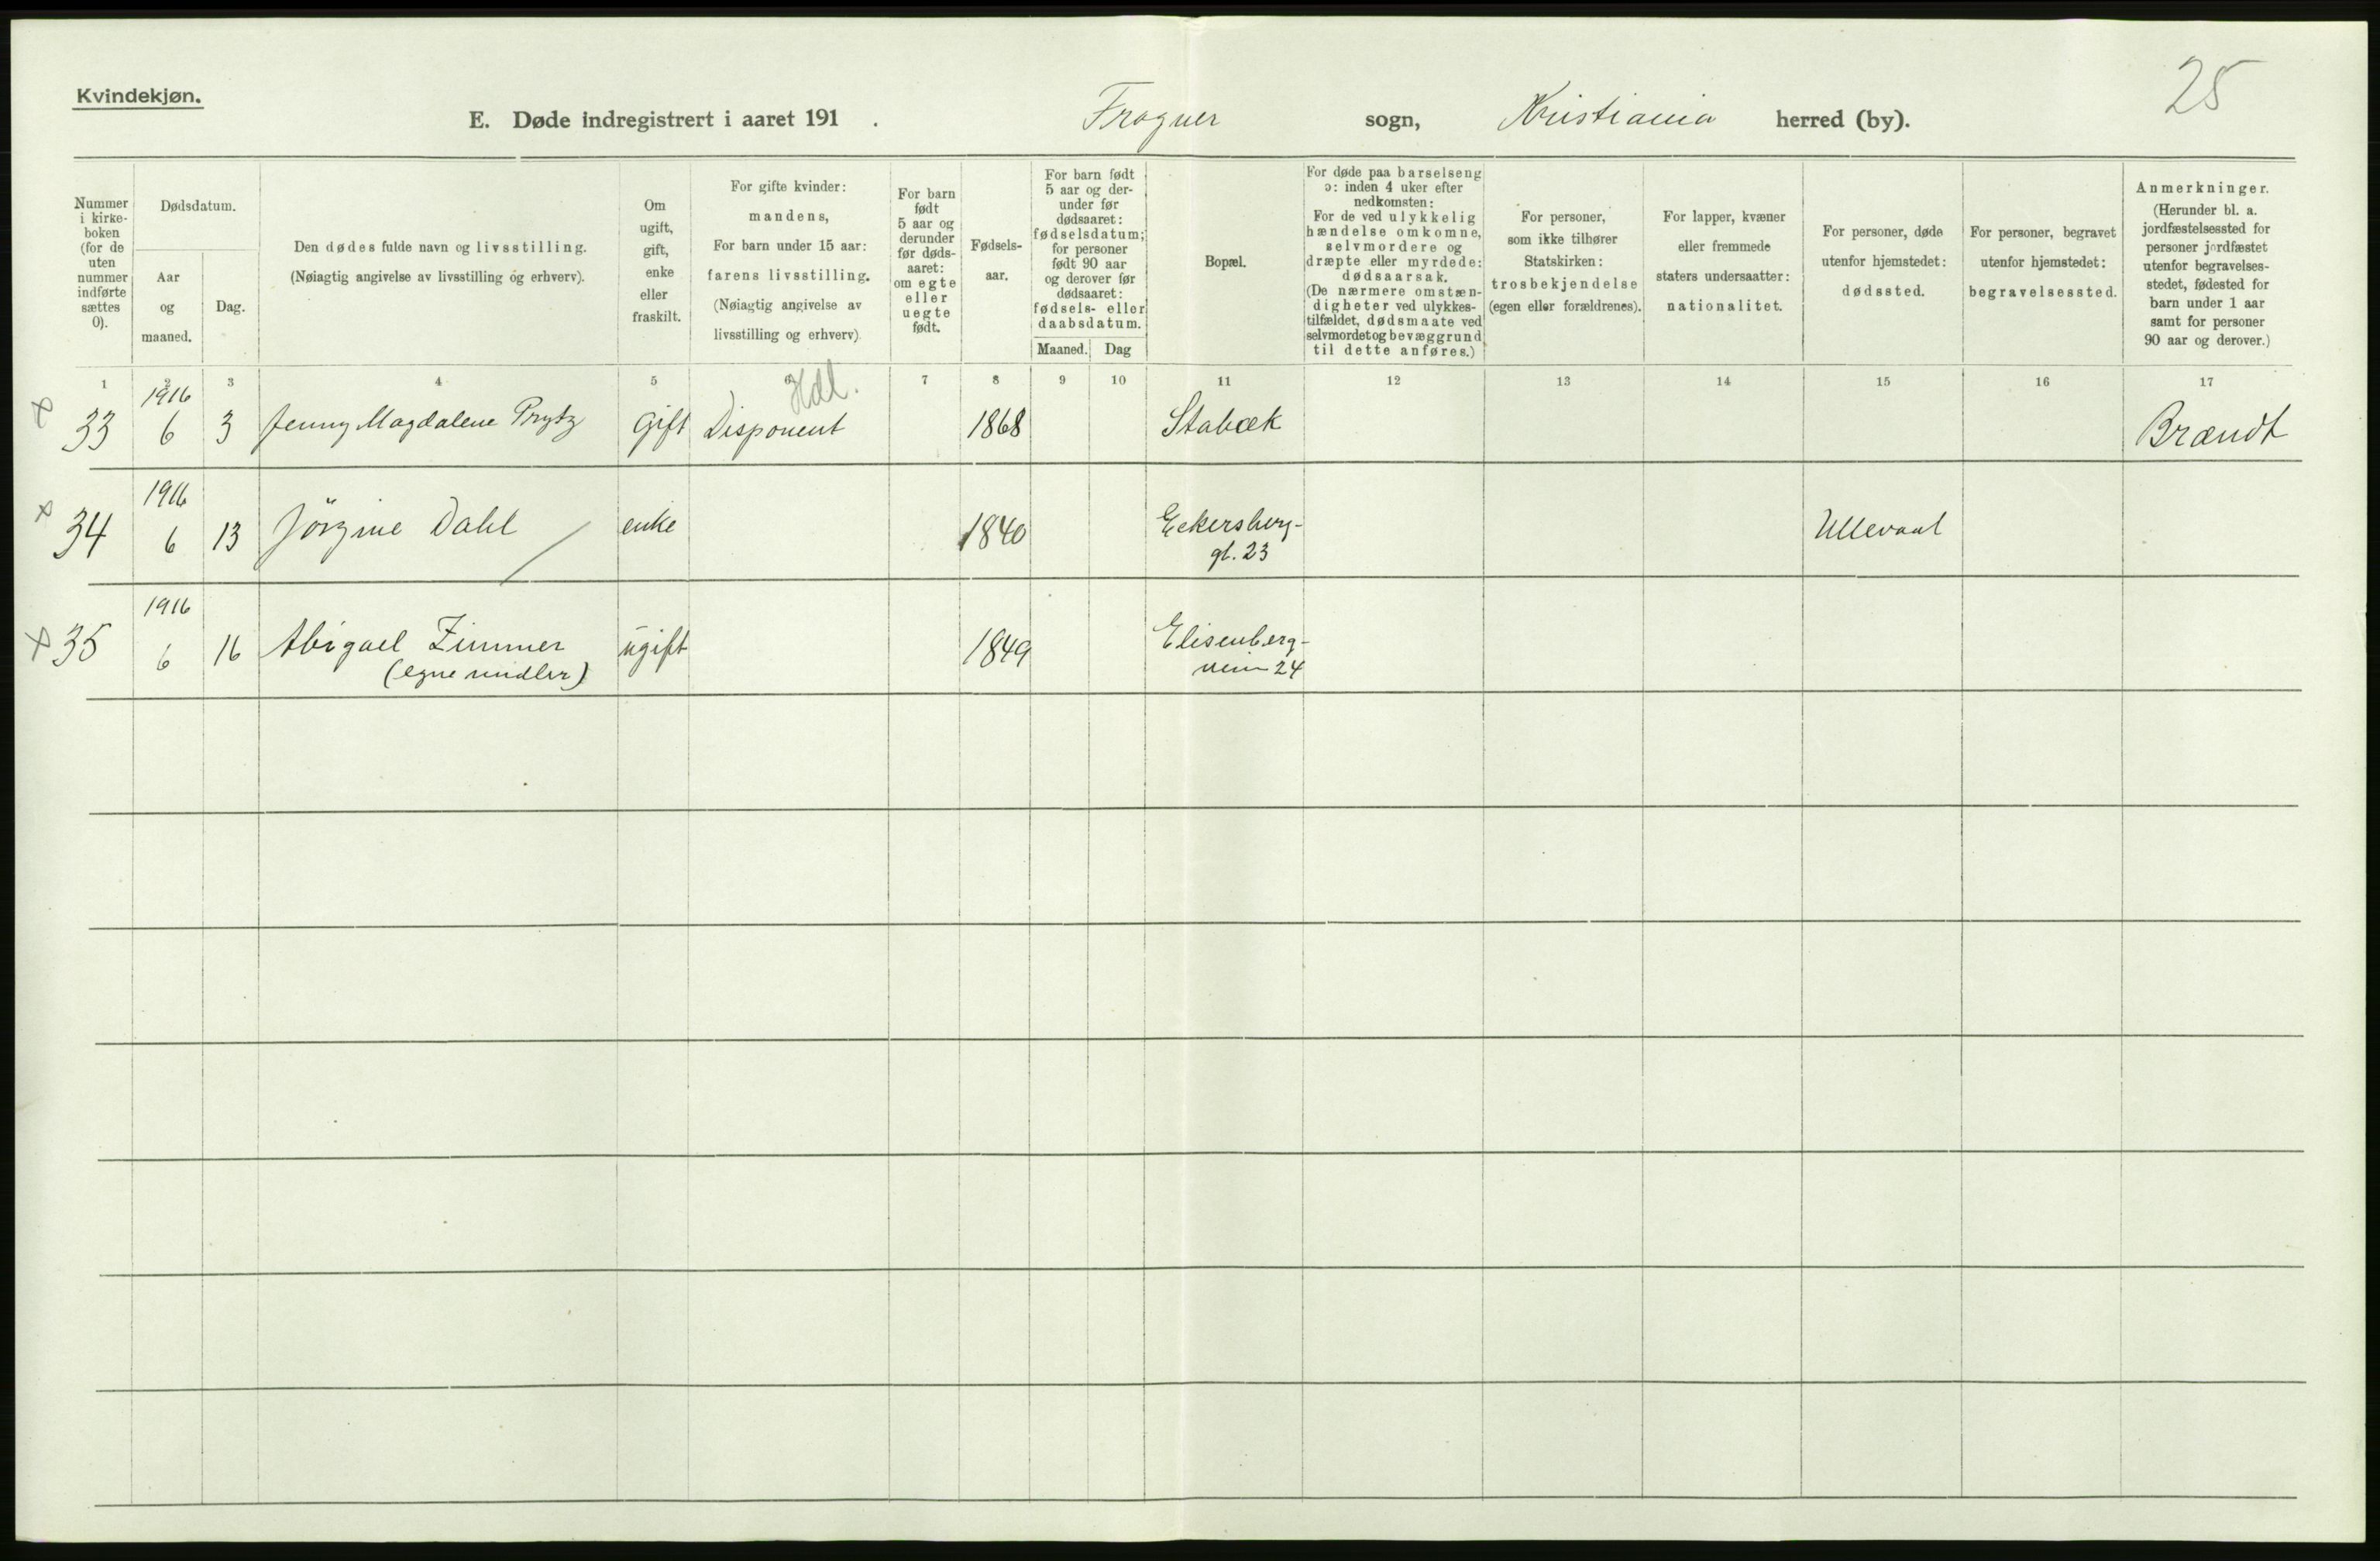 25
Kvindekjøn.
E. Døde indregistrert i aaret 191 . Frogner sogn, Kristiania herred (by).
Nummer
i kirke-
boken
(for de
uten
nummer
indførte
sættes
0).
Dødsdatum.
Aar
og
maaned.
Dag.
Den dødes fulde navn og livsstilling.
(Nøiagtig angivelse av livsstilling og erhverv).
Om
ugift,
gift,
enke
eller
fraskilt.
For gifte kvinder:
mandens,
For barn under 15 aar:
farens livsstilling.
(Nøiagtig angivelse av
livsstilling og erhverv).
For barn
født
5 aar og
derunder
før døds-
aaret:
om egte
eller
uegte
født.
Fødsels-
aar.
For barn født
5 aar og der-
under før
dødsaaret:
fødselsdatum;
for personer
født 90 aar
og derover før
dødsaaret:
fødsels- eller
daabsdatum.
Maaned. Dag
Bopæl.
For døde paa barselseng
ɔ: inden 4 uker efter
nedkomsten:
For de ved ulykkelig
hændelse omkomne,
selvmordere og
dræpte eller myrdede:
dødsaarsak.
(De nærmere omstæn-
digheter ved ulykkes-
tilfældet, dødsmaate ved
selvmordet og bevæggrund
til dette anføres.)
For personer,
som ikke tilhører
Statskirken:
trosbekjendelse
(egen eller forældrenes).
For lapper, kvæner
eller fremmede
staters undersaatter:
nationalitet.
For personer, døde
utenfor hjemstedet:
dødssted.
For personer, begravet
utenfor hjemstedet:
begravelsessted.
Anmerkninger.
(Herunder bl. a.
jordfæstelsessted for
personer jordfæstet
utenfor begravelses-
stedet, fødested for
barn under 1 aar
samt for personer
90 aar og derover.)
1 2 3 4 5 6 7 8 9 10 11 12 13 14 15 16 17
1916 Hdl.
× 33 6 3 Jenny Magdalene Prytz gift Disponent 1868 Stabæk Brændt
1916
× 34 6 13 Jörgine Dahl enke 1840 Eckersberg- Ullevaal
gt. 23
1916
× 35 6 16 Abigael Zimmer ugift 1849 Elisenberg-
(egne midler) veien 24